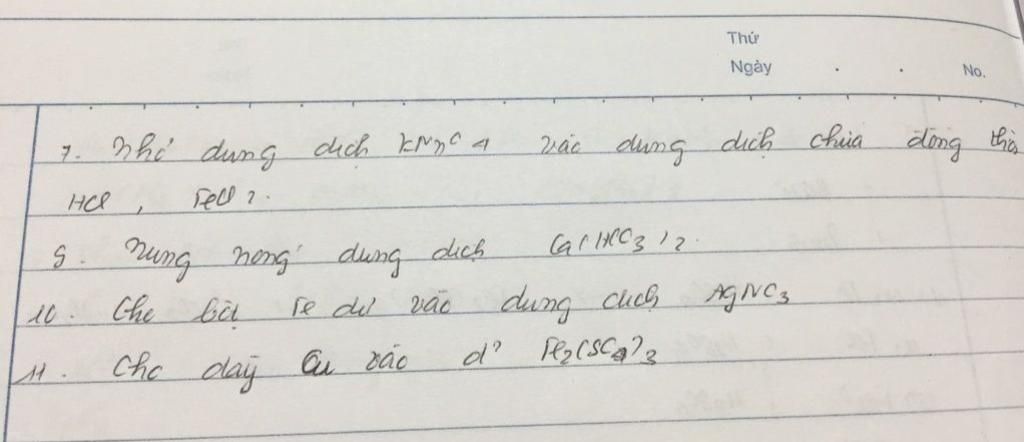 Thứ
Ngày . . No.
7. Nhỏ dung dịch KMnO4 vào dung dịch chứa đồng thời
HCl, FeCl2.
9. Nung nóng dung dịch Ca(HCO3)2.
10. Cho bột Fe dư vào dung dịch AgNO3
11. Cho dây Cu vào d² Fe2(SO4)3